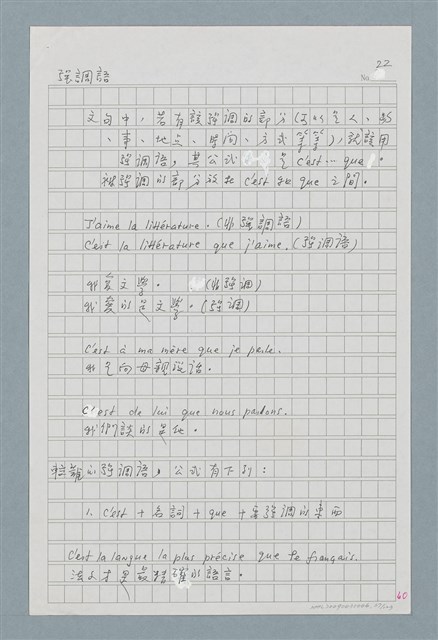 22
No.
強調語
文句中,若有該強調的部分(可以是人、物
、事、地点、時间、方式等等),就該用
強调语,其公式是 c'est … que 。
被強调的部分放在 c'est 和 que 之间。
J'aime la littérature. (非強調語)
C'est la littérature que j'aime. (強调语)
我爱文學。 (非強调)
我爱的是文學。(強调)
C'est à ma mère que je parle.
我是向母親说话。
C'est de lui que nous parlons.
我们談的是他。
較難的強调语,公式有下列:
1. C'est + 名詞 + que + 要強调的東西
C'est la langue la plus précise que le français.
法文才是最精確的語言。
60